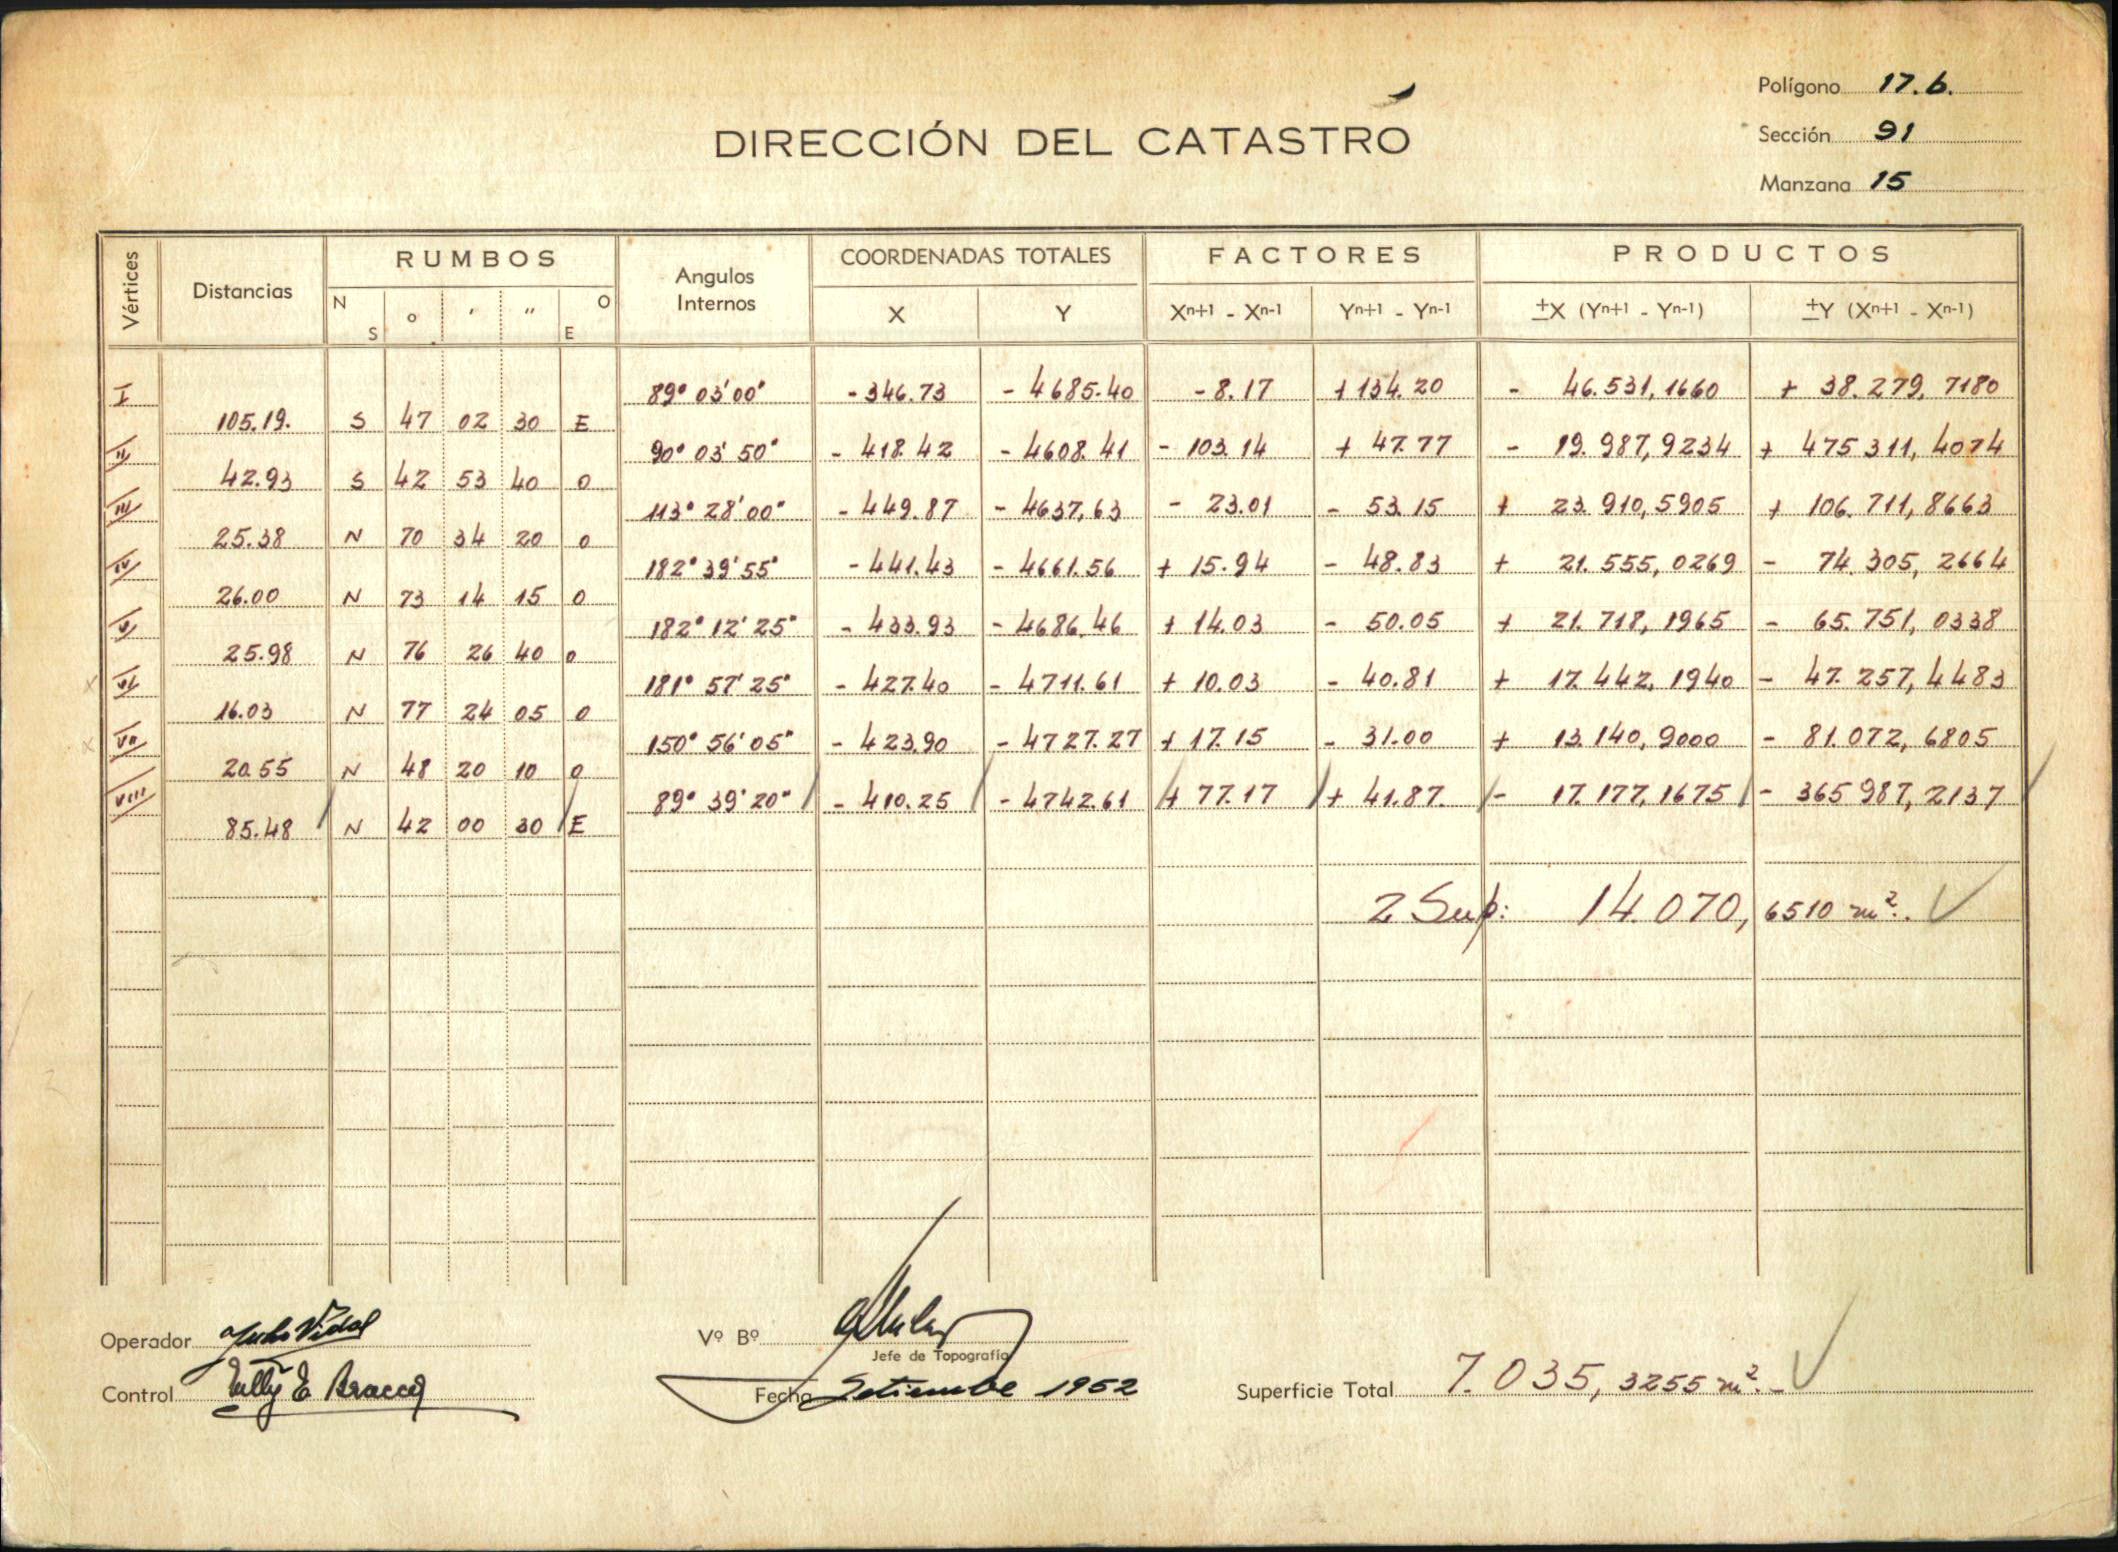 Polígono 17.b.
DIRECCIÓN DEL CATASTRO
Sección 91
Manzana 15
Vértices Distancias RUMBOS Angulos Internos COORDENADAS TOTALES FACTORES PRODUCTOS
N S o ' '' O E X Y Xn+1 - Xn-1 Yn+1 - Yn-1 ±X (Yn+1 - Yn-1) ±Y (Xn+1 - Xn-1)
I 89° 03' 00" - 346.73 - 4685.40 - 8.17 + 134.20 - 46.531,1660 + 38.279,7180
105.19. S 47 02 30 E
II 90° 03' 50" - 418.42 - 4608.41 - 103.14 + 47.77 - 19.987,9234 + 475311,4074
42.93 S 42 53 40 O
III 113° 28' 00" - 449.87 - 4637,63 - 23.01 - 53.15 + 23.910,5905 + 106.711,8663
25.38 N 70 34 20 O
IV 182° 39' 55" - 441.43 - 4661.56 + 15.94 - 48.83 + 21.555,0269 - 74.305,2664
26.00 N 73 14 15 O
V 182° 12' 25" - 433.93 - 4686.46 + 14.03 - 50.05 + 21.718,1965 - 65.751,0338
25.98 N 76 26 40 O
VI 181° 57' 25" - 427.40 - 4711.61 + 10.03 - 40.81 + 17.442,1940 - 47.257,4483
16.03 N 77 24 05 O
VII 150° 56' 05" - 423.90 - 4727.27 + 17.15 - 31.00 + 13.140,9000 - 81.072,6805
20.55 N 48 20 10 O
VIII 89° 39' 20" - 410.25 - 4742.61 + 77.17 + 41.87. - 17.177,1675 - 365987,2137
85.48 N 42 00 30 E
2 Sup: 14.070,6510 m².
Operador Julio Vidal Vº Bº
Jefe de Topografía
Control E. Bracco Fecha Setiembre 1952 Superficie Total 7.035,3255 m².-